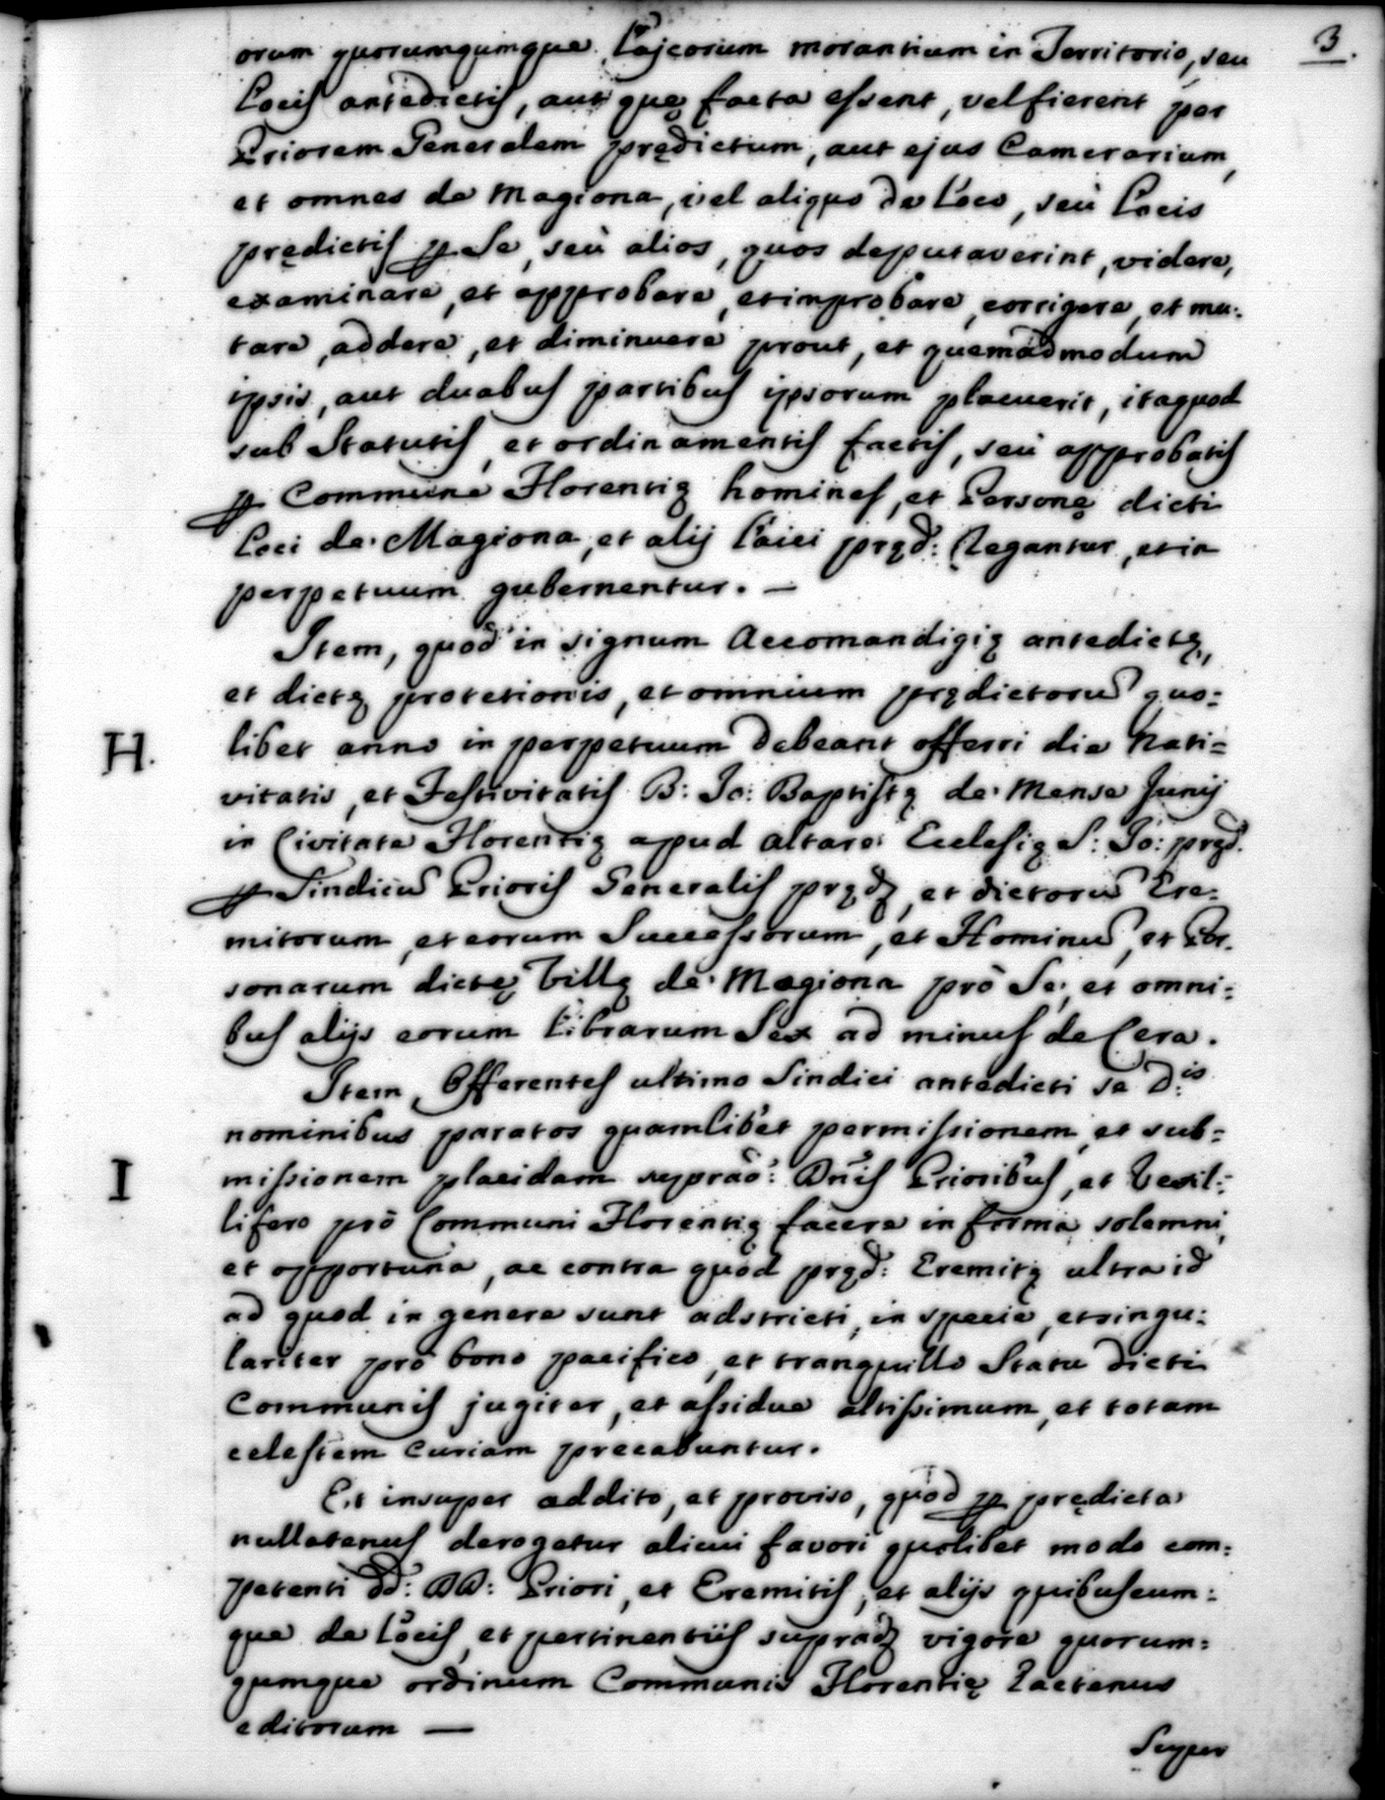 3.
orum quorumqumque Lajcorium morantium in Territorio, seu
Locis antedictis, aut quę facta essent, vel fierent per
Priorem Generalem prędictum, aut ejus Camerarium,
et omnes de Magiona, vel aliquo de Loco, seù Locis
prędictis ꝑ Se, seù alios, quos deputaverint, videre,
examinare, et approbare, et improbare, corrigere, et mu:
tare, addere, et diminuere prout, et quemadmodum
ipsis, aut duabus partibus ipsorum placuerit, itaquod
sub Statutis, et ordinamentis factis, seù approbatis
ꝑ Commune Florentię homines, et Personę dicti
Loci de Magiona, et alij Laici pręd: Regantur, et in
perpetuum gubernentur. —
Item, quod in signum Accomandigię antedictę,
et dictę protetionis, et omnium prędictorū quo=
H. libet anno in perpetuum debeant offerri die Nati=
vitatis, et Festivitatis B: Jo: Baptistę de Mense Junij
in Civitate Florentię apud altare Ecclesię S: Jo: pręd.
ꝑ Sindicū Prioris Generalis pręd., et dictorū Ere=
mitorum, et eorum Successorum, et Hominū, et Per.
sonarum dictę Villę de Magiona prò Se, et omni:
bus alijs eorum Librarum Sex ad minus de Cera.
Item, Offerentes ultimo Sindici antedicti se D.is
nominibus paratos quamlibet permissionem, et sub=
I missionem placidam suprad: Dn̄is Prioribus, et Vexil=
lifero prò Communi Florentię facere in forma solemni,
et opportuna, ac contra quod pręd: Eremitę ultra id
ad quod in genere sunt adstricti, in specie, et singu:
lariter prò bono pacifico, et tranquillo Statu dicti
Communis jugiter, et assidue altissimum, et totam
celestem curiam precabuntur.
Et insuper addito, et proviso, quod ꝑ prędicta
nullatenus derogetur alicui favori quolibet modo com:
petenti dd: DD: Priori, et Eremitis, et alijs quibuscum:
que de Locis, et pertinentiis suprad. vigore quorum=
qumque ordinum Communis Florentię hactenus
editorum —
Super